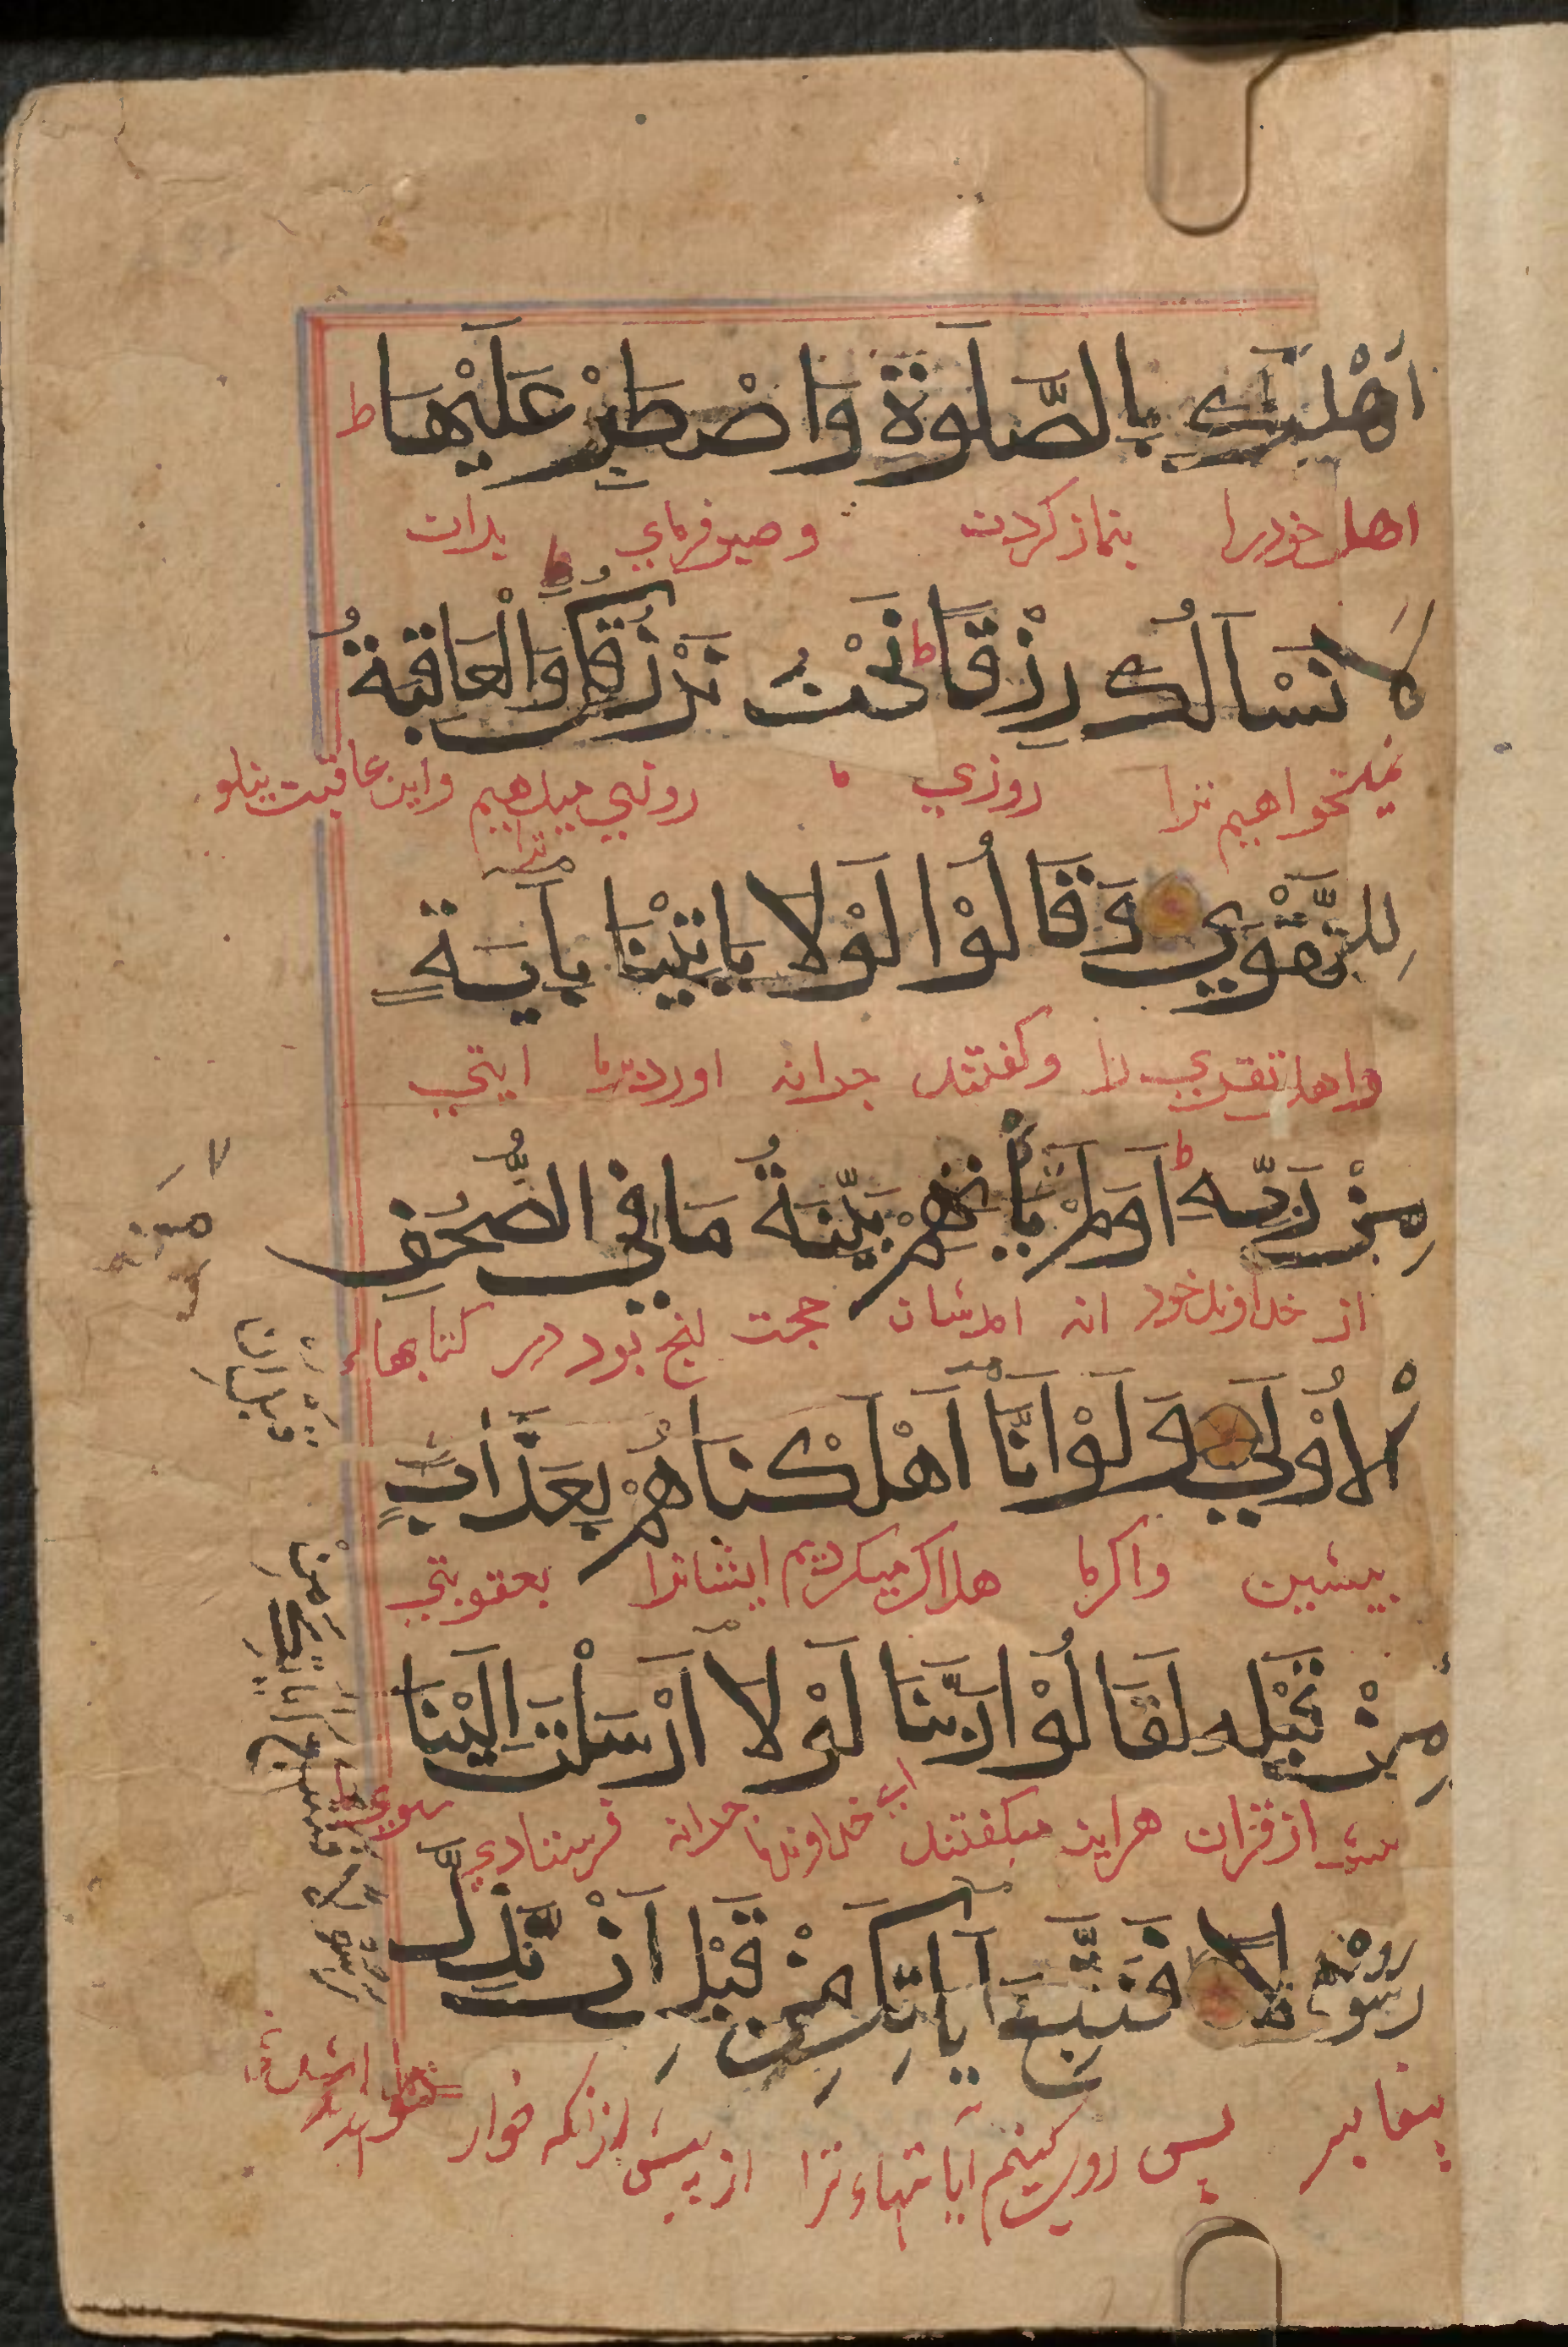 اَهْلَكَ بِالصَّلَوةِ وَاصْطَبِرْ عَلَيْهَا ط
اهل خودرا بنماز کردن و صبر فرمای بران
لَا نَسْاَلُكَ رِزْقًا ط نَحْنُ نَرْزُقُكَ ط وَالْعَاقِبَةُ
نمیخواهیم ترا روزی ما روزی میدهیم ترا واین عاقبت نیکو
لِلتَّقْوٰي وَقَالُوْا لَوْلَا يَاتِيْنَا بِاٰيَةٍ
واهل تقوی را وکفتند چرا نه اورد بما ایتی
مِنْ رَبِّهِ ط اَوَلَمْ يَأْتِهِمْ بَيِّنَةُ مَا فِي الصُّحُفِ
از خداوند خود انه امدشان حجت انچ بود در کتابهاء
الْاُوْلٰي وَلَوْ اَنَّا اَهْلَكْنَاهُمْ بِعَذَابٍ
پیشین واکر ما هلاک میکردیم ایشانرا بعقوبتی
مِنْ قَبْلِهِ لَقَالُوْا رَبَّنَا لَوْلَا اَرْسَلْتَ اِلَيْنَا
پیش از قران هراینه میکفتند ای خداوند ما چرا نه فرستادی بسوی ما
رَسُوْلًا فَنَتَّبِعَ اٰيَاتِكَ مِنْ قَبْلِ اَنْ نَذِلَّ
پیغامبر پس روی کنیم آیاتهاء ترا از پیش ازانکه خوار